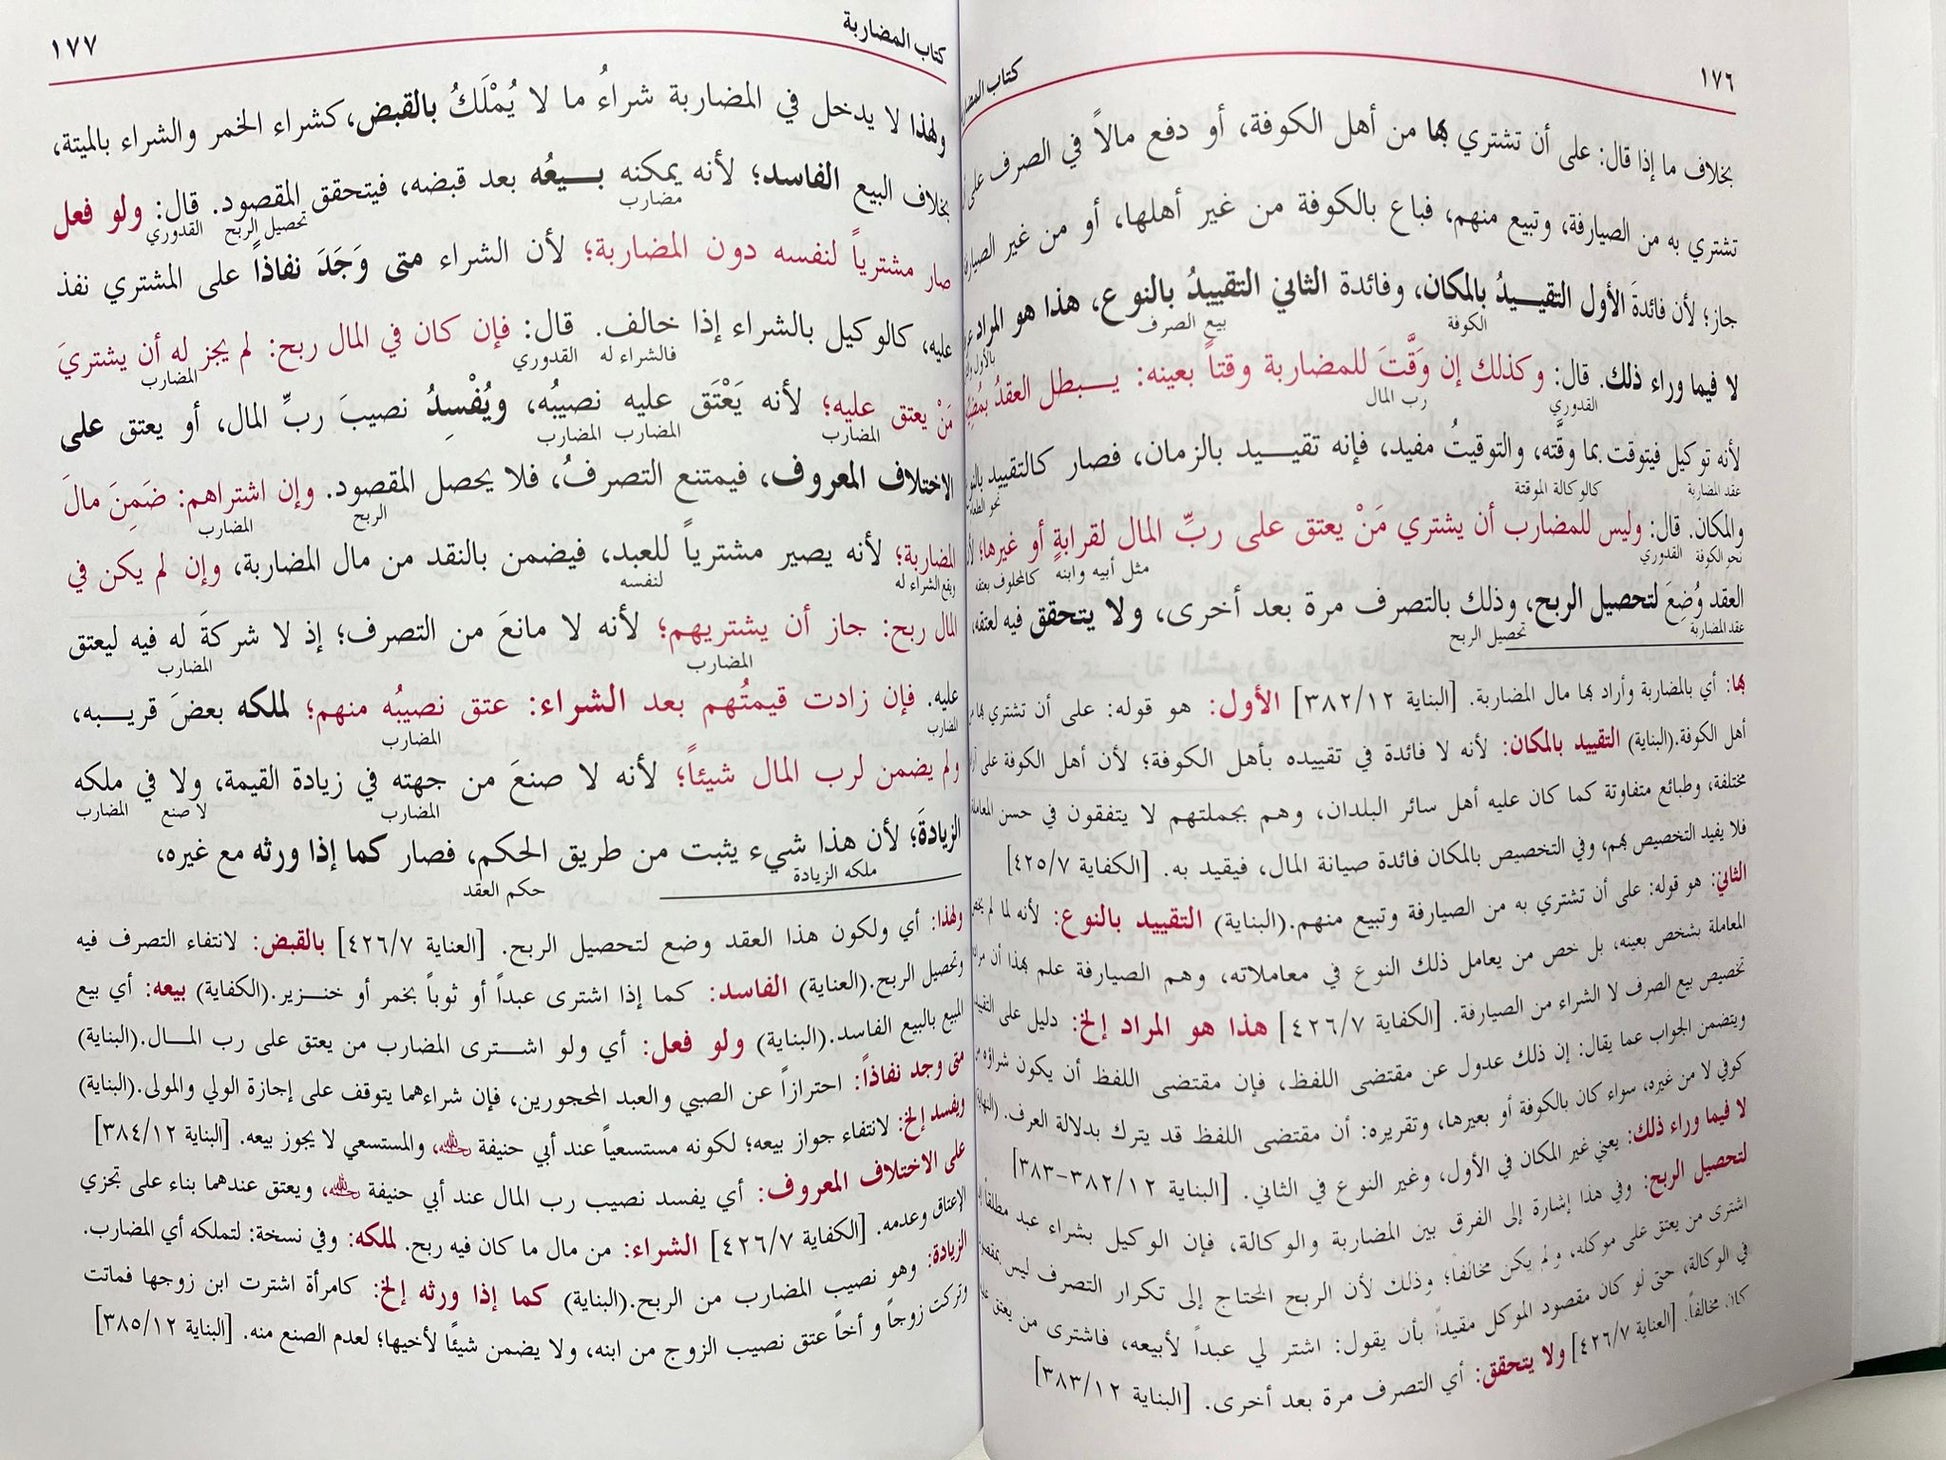 ١٧٦
كتاب
بخلاف ما إذا قال: على أن تشتري بها من أهل الكوفة، أو دفع مالاً في الصرف على
تشتري به من الصيارفة، وتبيع منهم، فباع بالكوفة من غير أهلها، أو من غير
جاز؛ لأن فائدةَ الأول التقييدُ بالمكان، وفائدة الثاني التقييدُ بالنوع، هذا هو المراد
الكوفة بيع الصرف
لا فيما وراء ذلك. قال: وكذلك إن وَقَّتَ للمضاربة وقتاً بعينه: يبطل العقدُ
القدوري رب المال
لأنه توكيل فيتوقت بما وقَّته، والتوقيتُ مفيد، فإنه تقييد بالزمان، فصار كالتقييد
عقد المضاربة كالوكالة الموقتة
والمكان. قال: وليس للمضارب أن يشتري مَنْ يعتق على ربِّ المال لقرابةٍ أو غيرها؛
نحو الكوفة القدوري مثل أبيه وابنه كالمحلوف بعتقه
العقد وُضِعَ لتحصيل الربح، وذلك بالتصرف مرة بعد أخرى، ولا يتحقق فيه لعتقه،
عقد المضاربة تحصيل الربح
بها: أي بالمضاربة وأراد بها مال المضاربة. [البناية ٣٨٢/١٢] الأول: هو قوله: على أن تشتري بها
أهل الكوفة.(البناية) التقييد بالمكان: لأنه لا فائدة في تقييده بأهل الكوفة؛ لأن أهل الكوفة على
مختلفة، وطبائع متفاوتة كما كان عليه أهل سائر البلدان، وهم بجملتهم لا يتفقون في حسن
فلا يفيد التخصيص بهم، وفي التخصيص بالمكان فائدة صيانة المال، فيقيد به. [الكفاية ٤٢٥/٧]
الثاني: هو قوله: على أن تشتري به من الصيارفة وتبيع منهم.(البناية) التقييد بالنوع: لأنه لما لم
المعاملة بشخص بعينه، بل خص من يعامل ذلك النوع في معاملاته، وهم الصيارفة علم بهذا أن
تخصيص بيع الصرف لا الشراء من الصيارفة. [الكفاية ٤٢٦/٧] هذا هو المراد إلخ: دليل على
ويتضمن الجواب عما يقال: إن ذلك عدول عن مقتضى اللفظ، فإن مقتضى اللفظ أن يكون شراؤه
كوفي لا من غيره، سواء كان بالكوفة أو بغيرها، وتقريره: أن مقتضى اللفظ قد يترك بدلالة العرف.
لا فيما وراء ذلك: يعني غير المكان في الأول، وغير النوع في الثاني. [البناية ٣٨٢/١٢-٣٨٣]
لتحصيل الربح: وفي هذا إشارة إلى الفرق بين المضاربة والوكالة، فإن الوكيل بشراء عبد مطلقاً
اشترى من يعتق على موكله، ولم يكن مخالفا؛ وذلك لأن الربح المحتاج إلى تكرار التصرف ليس
في الوكالة، حتى لو كان مقصود الموكل مقيداً بأن يقول: اشتر لي عبداً لأبيعه، فاشترى من يعتق
كان مخالفاً. [العناية ٤٢٦/٧] ولا يتحقق: أي التصرف مرة بعد أخرى. [البناية ٣٨٣/١٢]
كتاب المضاربة
١٧٧
ولهذا لا يدخل في المضاربة شراءُ ما لا يُمْلَكُ بالقبض، كشراء الخمر والشراء بالميتة،
بخلاف البيع الفاسد؛ لأنه يمكنه بيعُه بعد قبضه، فيتحقق المقصود. قال: ولو فعل
مضارب تحصيل الربح القدوري
صار مشترياً لنفسه دون المضاربة؛ لأن الشراء متى وَجَدَ نفاذاً على المشتري نفذ
عليه، كالوكيل بالشراء إذا خالف. قال: فإن كان في المال ربح: لم يجز له أن يشتريَ
فالشراء له القدوري المضارب
مَنْ يعتق عليه؛ لأنه يَعْتَق عليه نصيبُه، ويُفْسِدُ نصيبَ ربِّ المال، أو يعتق على
المضارب المضارب المضارب
الاختلاف المعروف، فيمتنع التصرفُ، فلا يحصل المقصود. وإن اشتراهم: ضَمِنَ مالَ
الربح المضارب
المضاربة؛ لأنه يصير مشترياً للعبد، فيضمن بالنقد من مال المضاربة، وإن لم يكن في
ويقع الشراء له لنفسه
المال ربح: جاز أن يشتريهم؛ لأنه لا مانعَ من التصرف؛ إذ لا شركةَ له فيه ليعتق
المضارب المضارب
عليه. فإن زادت قيمتُهم بعد الشراء: عتق نصيبُه منهم؛ لملكه بعضَ قريبه،
المضارب المضارب
ولم يضمن لرب المال شيئاً؛ لأنه لا صنعَ من جهته في زيادة القيمة، ولا في ملكه
المضارب لا صنع المضارب
الزيادةَ؛ لأن هذا شيء يثبت من طريق الحكم، فصار كما إذا ورثه مع غيره،
ملكه الزيادة حكم العقد
ولهذا: أي ولكون هذا العقد وضع لتحصيل الربح. [العناية ٤٢٦/٧] بالقبض: لانتفاء التصرف فيه
وتحصيل الربح.(العناية) الفاسد: كما إذا اشترى عبداً أو ثوباً بخمر أو خنزير.(الكفاية) بيعه: أي بيع
المبيع بالبيع الفاسد.(البناية) ولو فعل: أي ولو اشترى المضارب من يعتق على رب المال.(البناية)
متى وجد نفاذاً: احترازاً عن الصبي والعبد المحجورين، فإن شراءهما يتوقف على إجازة الولي والمولى.(البناية)
ويفسد إلخ: لانتفاء جواز بيعه؛ لكونه مستسعياً عند أبي حنيفة رحمه الله، والمستسعي لا يجوز بيعه. [البناية ٣٨٤/١٢]
على الاختلاف المعروف: أي يفسد نصيب رب المال عند أبي حنيفة رحمه الله، ويعتق عندهما بناء على تجزي
الإعتاق وعدمه. [الكفاية ٤٢٦/٧] الشراء: من مال ما كان فيه ربح. لملكه: وفي نسخة: لتملكه أي المضارب.
الزيادة: وهو نصيب المضارب من الربح.(البناية) كما إذا ورثه إلخ: كامرأة اشترت ابن زوجها فماتت
وتركت زوجاً و أخاً عتق نصيب الزوج من ابنه، ولا يضمن شيئًا لأخيها؛ لعدم الصنع منه. [البناية ٣٨٥/١٢]